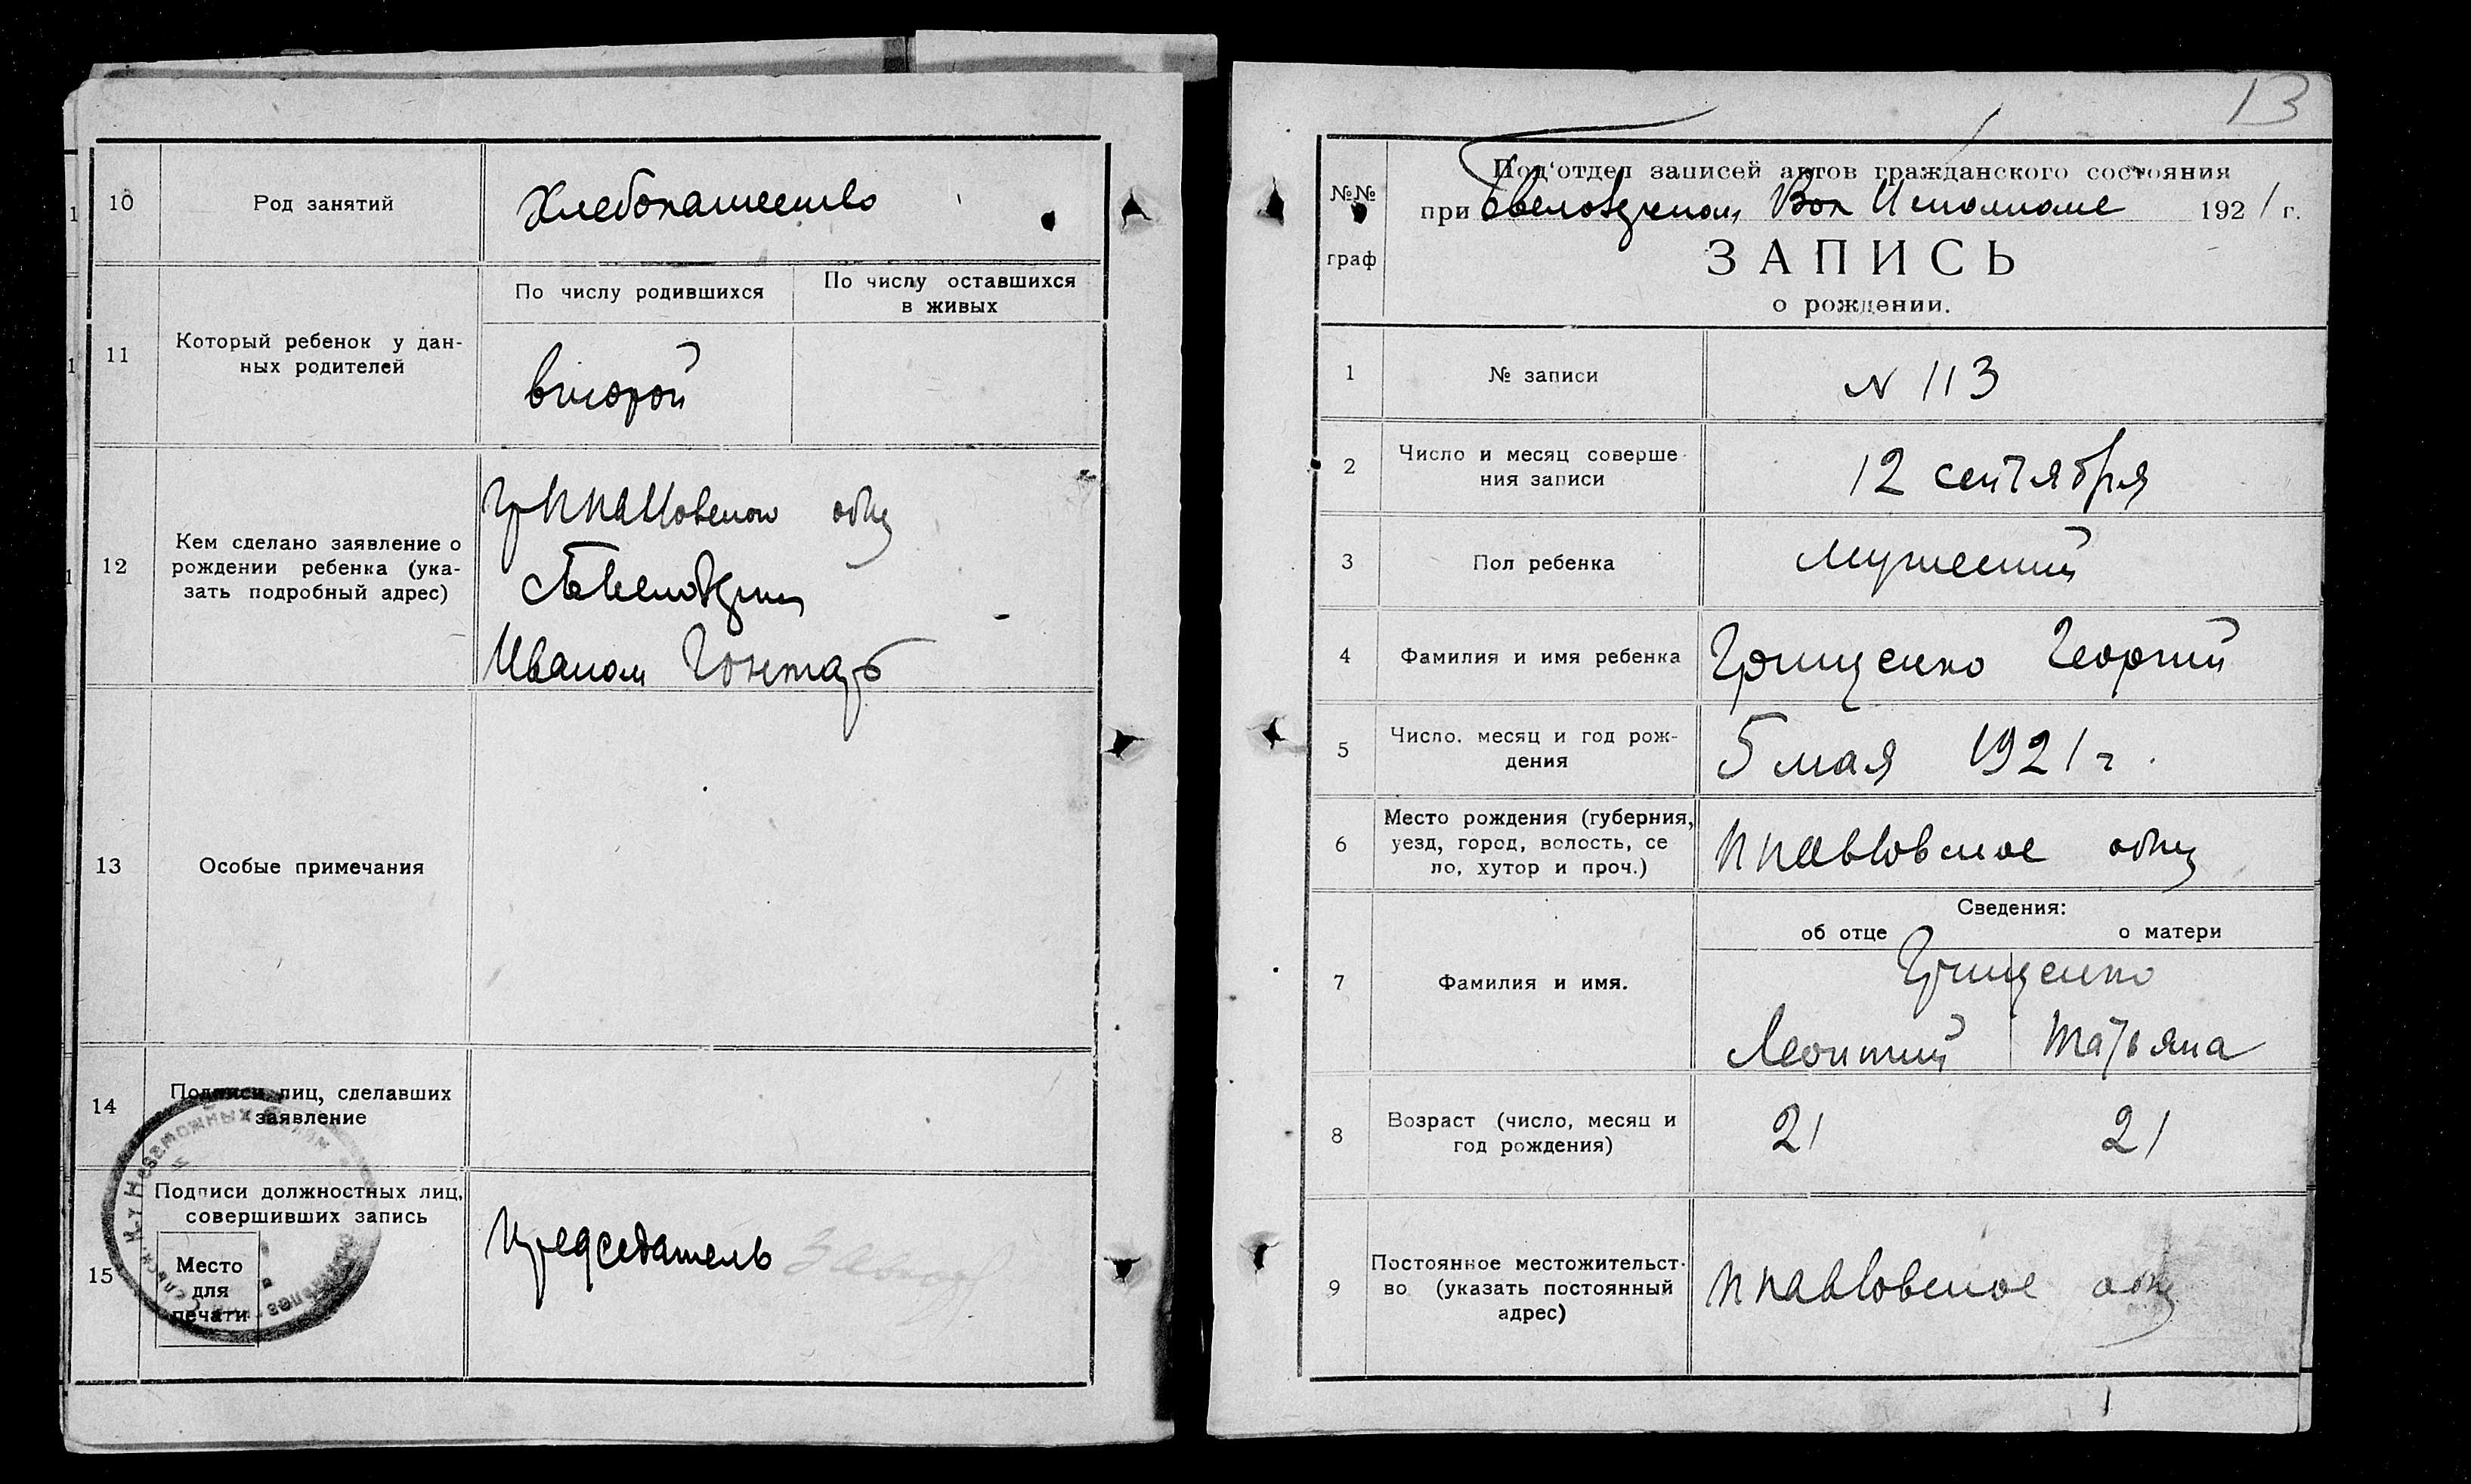 10
Род занятий
Хлебопашество
11
Который ребенок у дан-
ных родителей
По числу родившихся
По числу оставшихся
в живых
второй
12
Кем сделано заявление о
рождении ребенка (ука-
зать подробный адрес)
Иваном Гонтарь
13
Особые примечания
14
Подписи лиц, сделавших
заявление
15
Подписи должностных лиц,
совершивших запись
Место
для
печати
Председатель
13
№№
граф
Под'отдел записей актов гражданского состояния
при Вол Исполкоме 1921 г.
ЗАПИСЬ
о рождении.
1
№ записи
N 113
2
Число и месяц соверше-
ния записи
12 сентября
3
Пол ребенка
мужеский
4
Фамилия и имя ребенка
Грищенко Георгий
5
Число, месяц и год рож-
дения
5 мая 1921 г.
6
Место рождения (губерния,
уезд, город, волость, се
ло, хутор и проч.)
общ
7
Фамилия и имя.
Сведения:
об отце
о матери
Грищенко
Леонтий
Татьяна
8
Возраст (число, месяц и
год рождения)
21
21
9
Постоянное местожительст-
во (указать постоянный
адрес)
общ